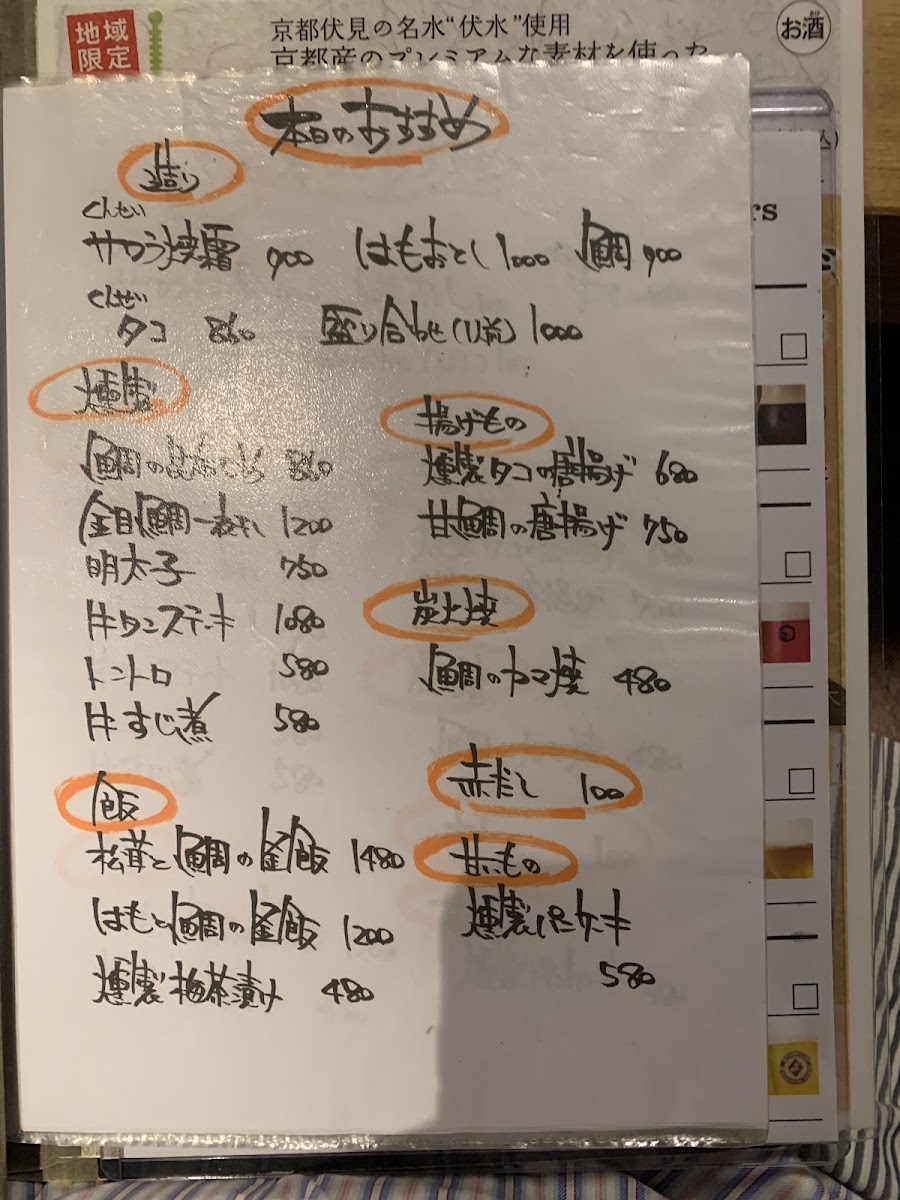 地域
限定
京都伏見の名水“伏水”使用
京都産のプレミアムな素材を使った
お酒
本日のおすすめ
造り
くんせい
サワラ焼霜 900 はもおとし 1000 鯛 900
くんせい
タコ 860 盛り合わせ(1人前) 1000
燻製
鯛の昆布〆 860
金目鯛一夜干し 1200
明太子 750
牛タンステーキ 1080
トントロ 580
牛すじ煮 580
揚げもの
燻製タコの唐揚げ 680
甘鯛の唐揚げ 750
炭火焼
鯛のカマ焼 480
飯
松茸と鯛の釜飯 1480
はもと鯛の釜飯 1200
燻製梅茶漬け 480
赤だし 100
甘いもの
燻製バターケーキ
580
rs